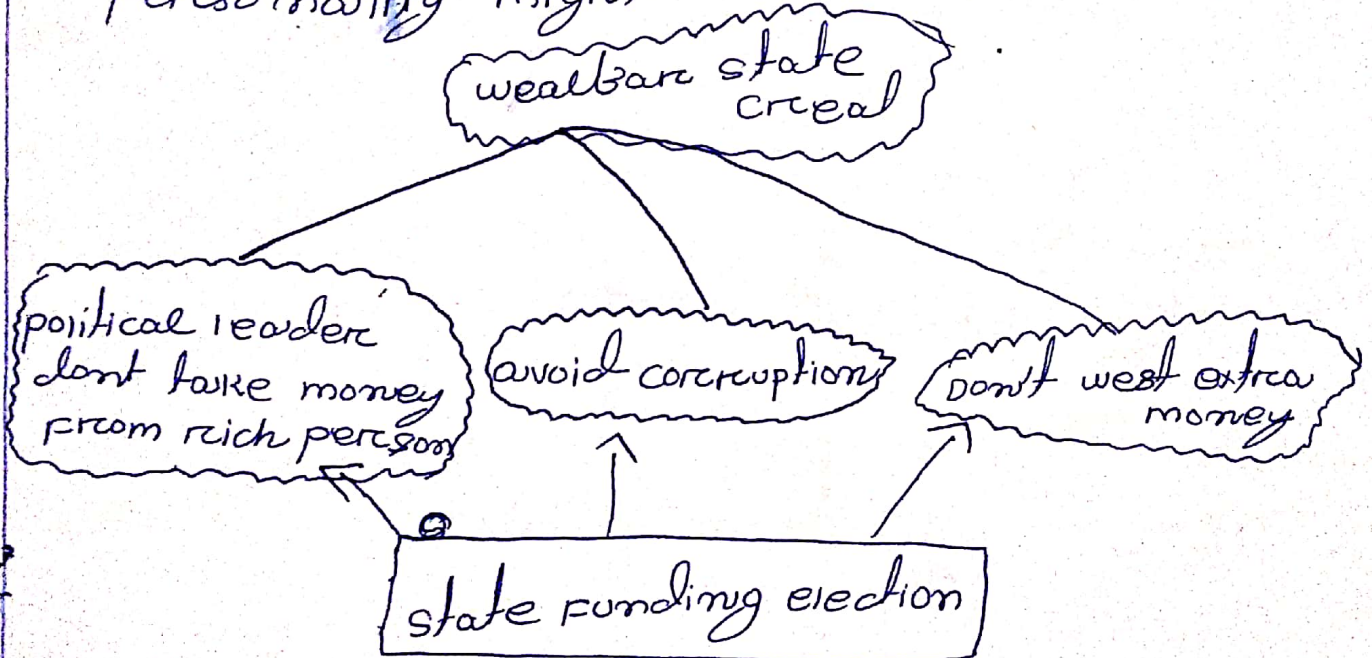 wealbare state
creal
political leader
dont take money
from rich person
avoid corruption
Don't west extra
money
state funding election